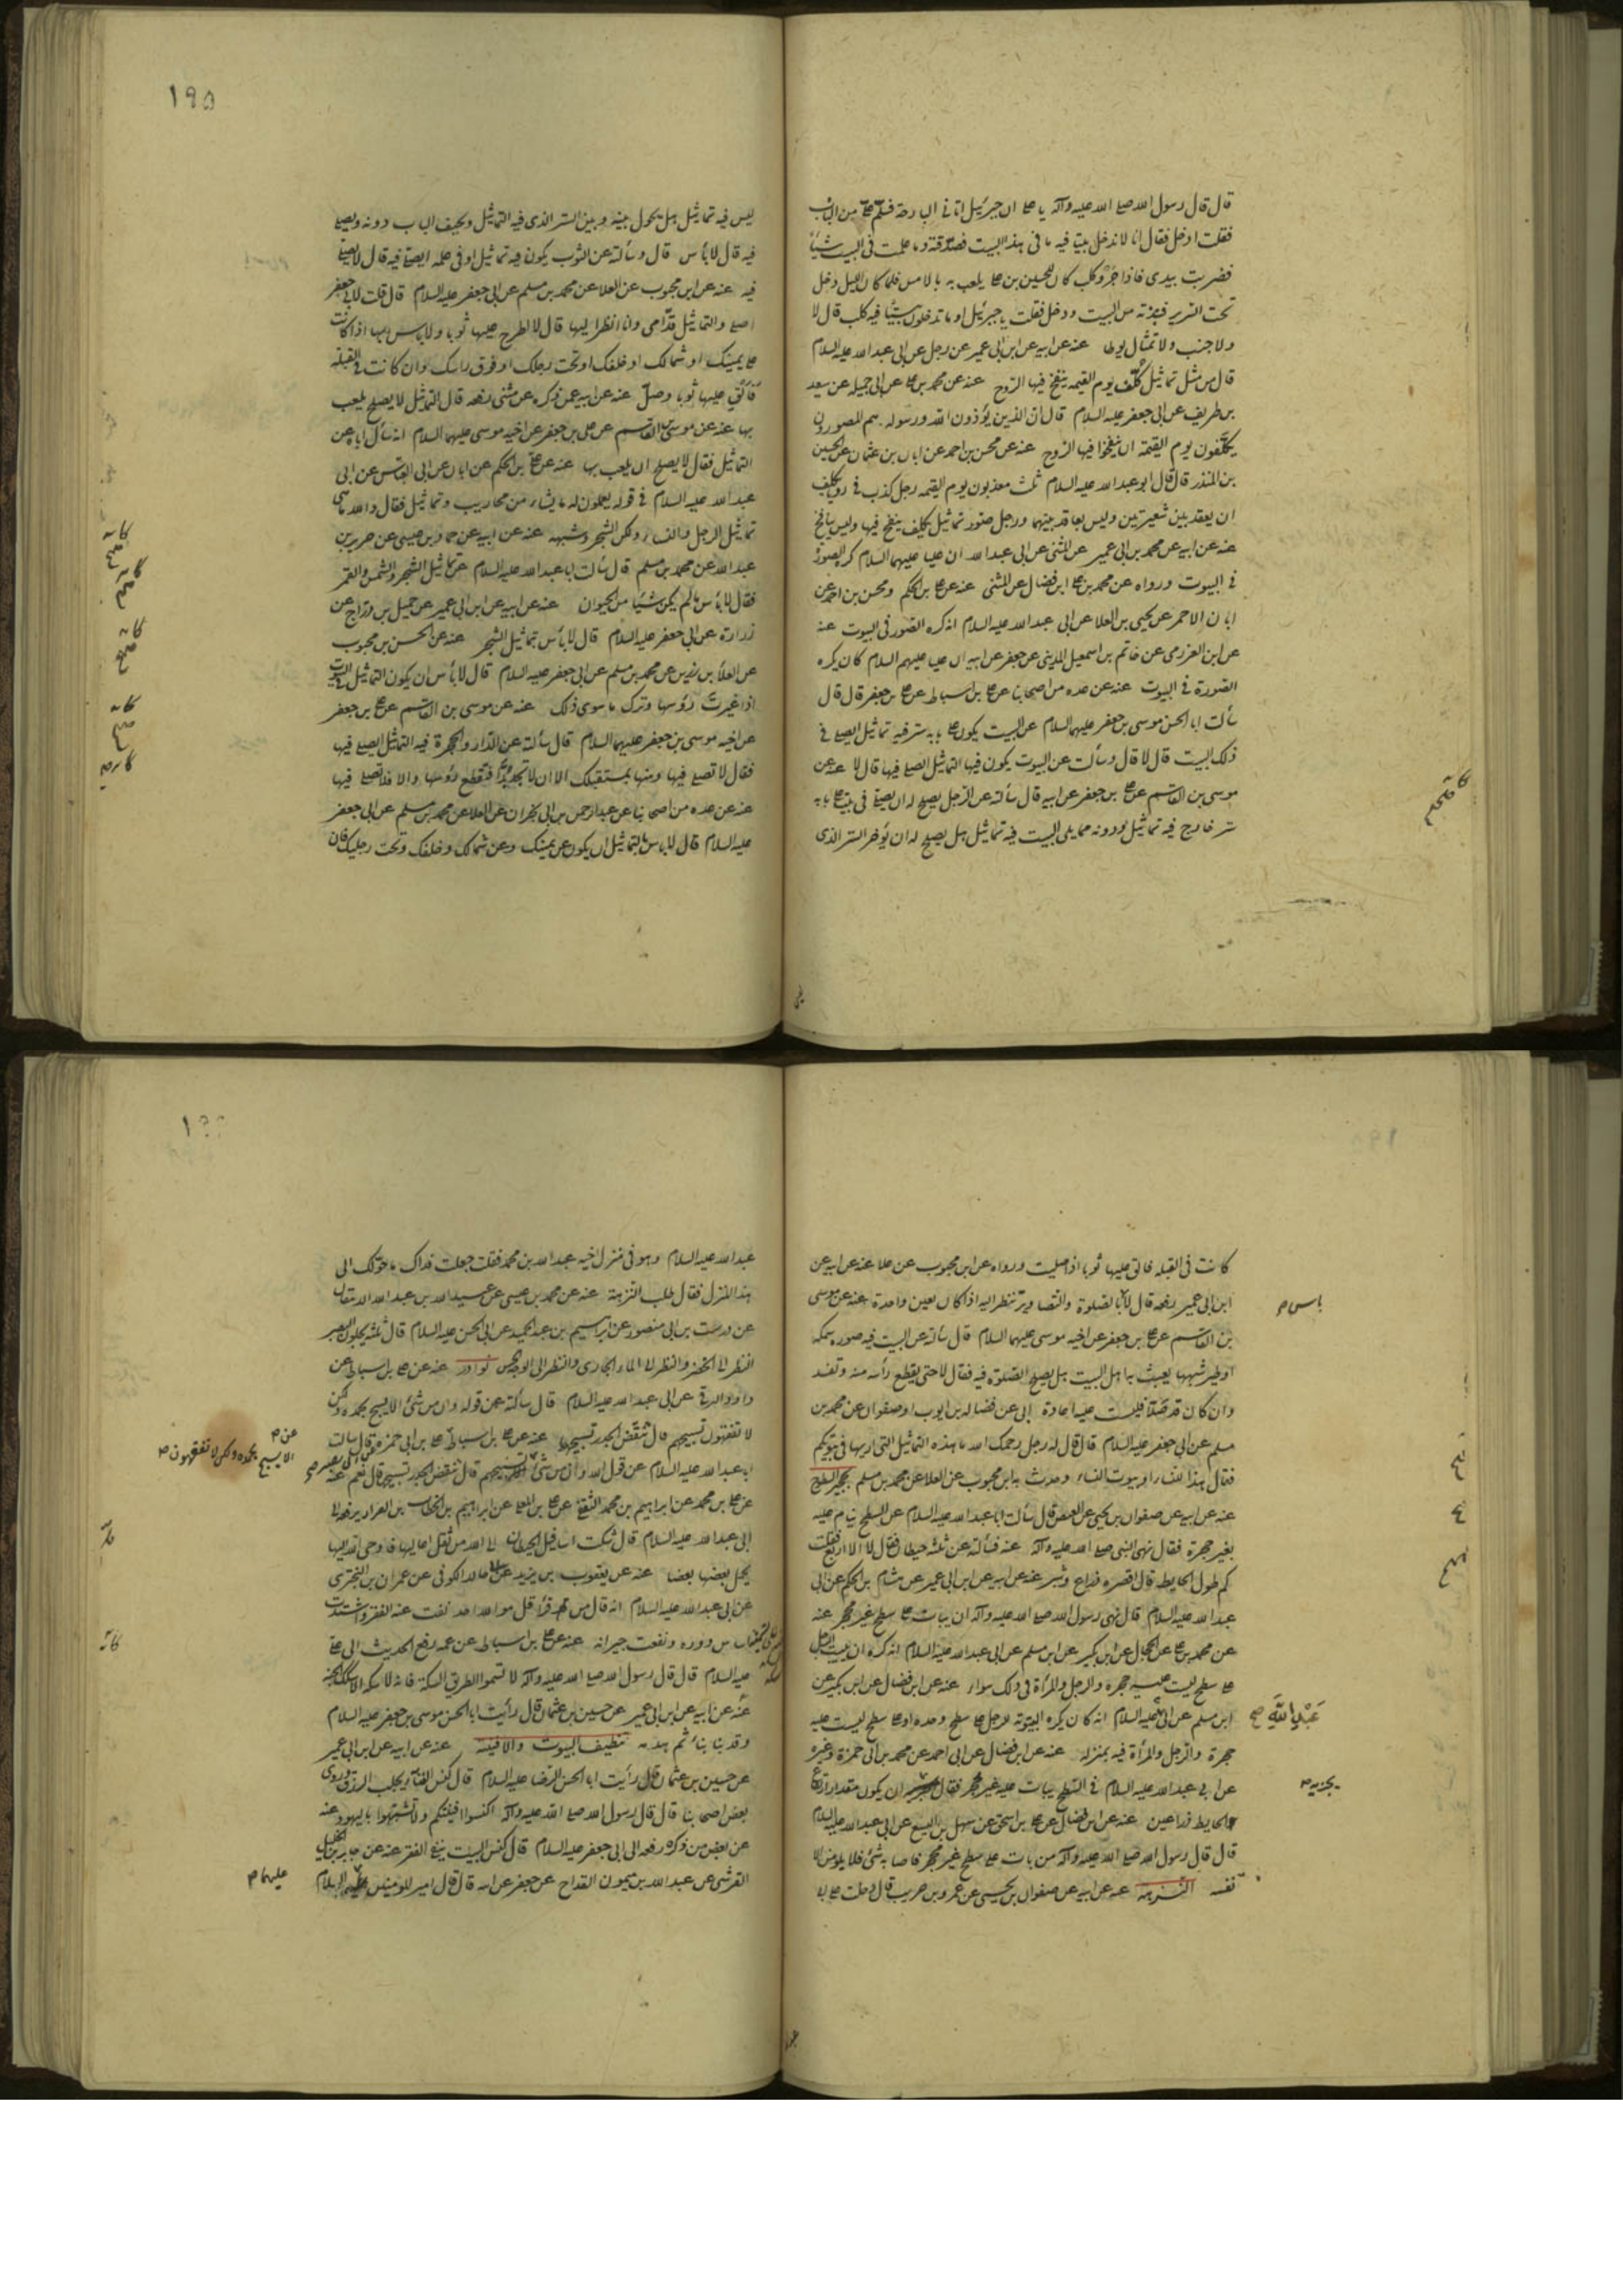 قال قال رسول الله صلى الله عليه وآله يا على ان جبرئيل اتانى البارحة فسلم على من الباب
فقلت ادخل فقال انا لا ندخل بيتا فيه ما فى هذا البيت فصدقته وما علمت فى البيت شيئا
فضربت بيدى فاذا جرو كلب كان للحسين بن على يلعب به بالامس فلما كان الليل دخل
تحت السرير فنبذته من البيت ودخل فقلت يا جبرئيل او ما تدخلون بيتا فيه كلب قال لا
ولا جنب ولا تمثال يوطا عنه عن ابيه عن ابن ابى عمير عن رجل عن ابى عبد الله عليه السلام
قال من مثل تماثيل كلف يوم القيمه ينفخ فيها الروح عنه عن محمد بن على عن ابى جميله عن سعد
بن طريف عن ابى جعفر عليه السلام قال ان الذين يؤذون الله ورسوله هم المصورون
يكلفون يوم القيمة ان ينفخوا فيها الروح عنه عن محسن بن احمد عن ابان بن عثمان عن الحسين
بن المنذر قال قال ابو عبد الله عليه السلام ثلث معذبون يوم القيمه رجل كذب فى رؤياه يكلف
ان يعقد بين شعيرتين وليس بعاقد بينهما ورجل صور تماثيل يكلف ينفخ فيها وليس بنافخ
عنه عن ابيه عن محمد بن ابى عمير عن المثنى عن ابى عبد الله ان عليا عليهما السلام كره الصور
فى البيوت ورواه عن محمد بن على ابن فضال عن المثنى عنه عن على بن الحكم ومحسن بن احمد عن
ابان الاحمر عن يحيى بن العلا عن ابى عبد الله عليه السلام انه كره الصور فى البيوت عنه
عن ابن العرزمى عن حاتم بن اسمعيل المدينى عن جعفر عن ابيه ان عليا عليهم السلام كان يكره
الصورة فى البيوت عنه عن عده من اصحابنا عن على بن اسباط عن على بن جعفر قال قال
سألت ابا الحسن موسى بن جعفر عليهما السلام عن البيت يكون على بابه ستر فيه تماثيل ايصلى فى
ذلك البيت قال لا قال وسألت عن البيوت يكون فيها التماثيل ايصلى فيها قال لا عنه عن
موسى بن القاسم عن على بن جعفر عن ابيه قال سألته عن الرجل يصلح له ان يصلى فى بيت على بابه
ستر خارج فيه تماثيل ودونه مما يلى البيت فيه تماثيل هل يصلح له ان يؤخر الستر الذى
١٩٥
ليس فيه تماثيل هل يحول بينه وبين الستر الذى فيه التماثيل ويجيف الباب دونه ويصلى
فيه قال لا بأس قال وسألته عن الثوب يكون فيه تماثيل او فى علمه ايصلى فيه قال لا يصلى
فيه عنه عن ابن محبوب عن العلا عن محمد بن مسلم عن ابى جعفر عليه السلام قال قلت لابى جعفر
اصلى والتماثيل قدامى وانا انظر اليها قال لا اطرح عليها ثوبا ولا باس بها اذا كانت
على يمينك او شمالك او خلفك او تحت رجلك او فوق راسك وان كانت فى القبلة
فالق عليها ثوبا وصل عنه عن ابيه عمن ذكره عن مثنى رفعه قال التماثيل لا يصلح يلعب
بها عنه عن موسى بن القاسم عن على بن جعفر عن اخيه موسى عليهما السلام انه سأل اباه عن
التماثيل فقال لا يصلح ان يلعب بها عنه عن على بن الحكم عن ابان عن ابى العباس عن ابى
عبد الله عليه السلام فى قوله يعملون له ما يشاء من محاريب وتماثيل فقال والله ما هى
تماثيل الرجل والنساء ولكن الشجر وشبهه عنه عن ابيه عن حماد بن عيسى عن حريز بن
عبد الله عن محمد بن مسلم قال سألت ابا عبد الله عليه السلام عن تماثيل الشجر والشمس والقمر
فقال لا بأس ما لم يكن شيئا من الحيوان عنه عن ابيه عن ابن ابى عمير عن جميل بن دراج عن
زرارة عن ابى جعفر عليه السلام قال لا بأس بتماثيل الشجر عنه عن الحسن بن محبوب
عن العلأ بن رزين عن محمد بن مسلم عن ابى جعفر عليه السلام قال لا بأس ان يكون التماثيل فى البيوت
اذا غيرت رؤسها وترك ما سوى ذلك عنه عن موسى بن القاسم عن على بن جعفر
عن اخيه موسى بن جعفر عليهما السلام قال سألته عن الدار والحجرة فيه التماثيل ايصلى فيها
فقال لا تصلى فيها ومنها بمستقبلك الا ان لا تجد بدا فتقطع رؤسها والا فلا تصلى فيها
عنه عن عده من اصحابنا عن عبد الرحمن بن ابى نجران عن العلا عن محمد بن مسلم عن ابى جعفر
عليه السلام قال لا بأس بالتماثيل ان يكون عن يمينك وعن شمالك وخلفك وتحت رجليك فان
كانت فى القبلة فالق عليها ثوبا اذا صليت ورواه عن ابن محبوب عن علا عنه عن ابيه عن
ابن ابى عمير رفعه قال لا بالصلوة والتصاوير تنظر اليه اذا كان بعين واحدة عنه عن موسى
بن القاسم عن على بن جعفر عن اخيه موسى عليهما السلام قال سألته عن البيت فيه صوره سمكه
او طير شبهها يعبث به اهل البيت هل يصلح الصلوة فيه فقال لا حتى يقطع رأسه منه وتفسد
وان كان قد صلى فليست عليه اعادة ابى عن فضاله بن ايوب او صفوان عن محمد بن
مسلم عن ابى جعفر عليه السلام قال قال له رجل رحمك الله ما هذه التماثيل التى اريها فى بيوتكم
فقال هذا للنساء او بيوت النساء وحدث به ابن محبوب عن العلا عن محمد بن مسلم تحجير السطح
عنه عن ابيه عن صفوان بن يحيى عن العيص قال سألت ابا عبد الله عليه السلام عن السطح ينام عليه
بغير حجرة فقال نهى النبى صلى الله عليه وآله عنه فسألته عن ثلثه حيطان فقال لا الا اربع فقلت
كم طول الحايط قال اقصره ذراع وشبر عنه عن ابيه عن ابن ابى عمير عن هشام بن الحكم عن ابى
عبد الله عليه السلام قال نهى رسول الله صلى الله عليه وآله ان يبات على سطح غير محجر عنه
عن محمد بن على عن الحجال عن ابن بكير عن ابن مسلم عن ابى عبد الله عليه السلام انه كره ان يبيت الرجل
على سطح ليست عليه حجره والرجل والمرأة فى ذلك سواء عنه عن ابن فضال عن ابن بكير عن
ابن مسلم عن ابى عليه السلام انه كان يكره البيتوته للرجل على سطح وحده او على سطح ليست عليه
حجرة والرجل والمرأة فيه بمنزله عنه عن ابن فضال عن ابى احمد عن محمد بن ابى حمزة وغيره
عن ابى عبد الله عليه السلام فى السطح يبات عليه غير محجر فقال ان يكون مقدار ارتفاع
الحايط ذراعين عنه عن ابن فضال عن على بن اسحق عن سهل بن اليسع عن ابى عبد الله عليه السلام
قال قال رسول الله صلى الله عليه وآله من بات على سطح غير محجر فاصابه شئ فلا يلومن الا
نفسه النزهة عنه عن ابيه عن صفوان بن يحيى عن عمرو بن حريث قال دخلت على ابى
باس م
عبد الله صح
يجزيه م
عبد الله عليه السلام وهو فى منزل اخيه عبد الله بن محمد فقلت جعلت فداك ما حولك الى
هذا المنزل فقال طلب النزهة عنه عن محمد بن عيسى عن عبيد الله بن عبد الله الدهقان
عن درست بن ابى منصور عن ابراهيم بن عبد الحميد عن ابى الحسن عليه السلام قال ثلثه يجلون البصر
النظر الى الخضر والنظر الى الماء الجارى والنظر الى الوجه الحسن نوادر عنه عن على بن اسباط عن
داود الرقى عن ابى عبد الله عليه السلام قال سألته عن قوله وان من شئ الا يسبح بحمده ولكن
لا تفقهون تسبيحهم قال تنقض الجدر تسبيحها عنه عن على بن اسباط على بن ابى حمزه قال سألت
ابا عبد الله عليه السلام عن قول الله وان من شئ تسبيحهم قال تنقض الجدر تسبيحها قال نعم عنه
عن على بن محمد عن ابراهيم بن محمد الثقفى عن على بن المعلى عن ابراهيم بن الخطاب بن الفراء يرفعه الى
ابى عبد الله عليه السلام قال شكت اسافل الحيطان الى الله من ثقل اعاليها فاوحى الله اليها
يحمل بعضها بعضا عنه عن يعقوب بن يزيد عن خالد الكوفى عن عمران بن البخترى
عن ابى عبد الله عليه السلام انه قال من قرأ قل هو الله احد نفت عنه الفقر واشتدت
من دوره ونفعت جيرانه عنه عن على بن اسباط عن عمه رفع الحديث الى على
عليه السلام قال قال رسول الله صلى الله عليه وآله لا تسموا الطريق السكة فانه لا سكة الا سكك الجنة
عنه عن ابيه عن ابن ابى عمير عن حسين بن عثمان قال رأيت ابا الحسن موسى بن جعفر عليه السلام
وقد بنا بناء ثم هدمه تنظيف البيوت والافنيه عنه عن ابيه عن ابن ابى عمير
عن حسين بن عثمان قال رأيت ابا الحسن الرضا عليه السلام قال كنس الفناء يجلب الرزق وروى
بعض اصحابنا قال قال رسول الله صلى الله عليه وآله اكنسوا افنيتكم ولا تشبهوا باليهود عنه
عن بعض من ذكره رفعه الى ابى جعفر عليه السلام قال كنس البيت ينفى الفقر عنه عن جابر بن الخليل
القرشى عن عبد الله بن ميمون القداح عن جعفر عن ابيه قال قال امير المؤمنين عليه السلام
عن م
الا يسبح بحمده ولكن لا تفقهون م
عليهما م